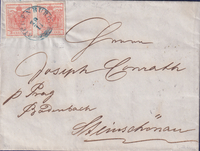 Herrn
Joseph Conrath
p Prag
Bodenbach
Steinschönau